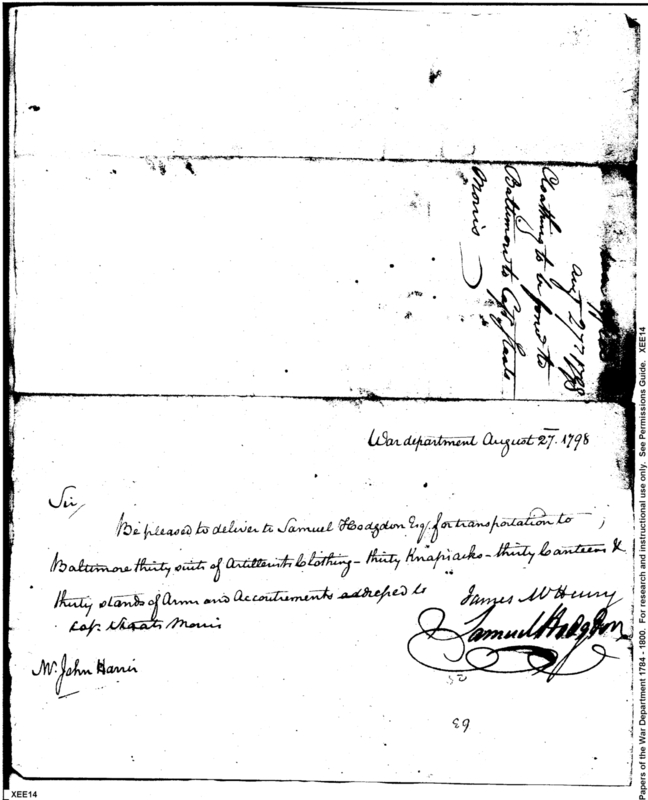 Augt 27th 1798
Cloathing to be forwd to
Baltimore to Capt Staats
Morris
War department August 27. 1798
Sir,
Be pleased to deliver to Samuel Hodgdon Esq. for transportation to
Baltimore thirty suits of Artillerists Clothing - thirty Knapsacks - thirty Canteens &
thirty stands of Arms and Accoutrements addressed to
Capt. Staats Morris
James McHenry
Samuel Hodgdon
Mr. John Harris
Papers of the War Department 1784 - 1800. For research and instructional use only. See Permissions Guide. XEE14
XEE14